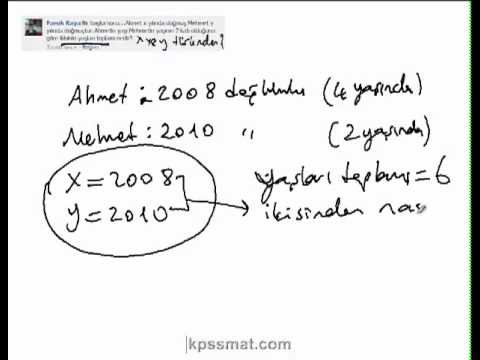 Faruk Kaya Bir başka soru... Ahmet x yılında doğmuş Mehmet y
yılında doğmuştur. Ahmetin yaşı Mehmetin yaşının 2 katı olduğuna
göre ikisinin yaşları toplamı nedir?
x ve y türünden?
Ahmet : 2008 doğumlu (4 yaşında)
Mehmet : 2010 " (2 yaşında)
x = 2008
yaşları toplamı = 6
y = 2010
ikisinden nas
kpssmat.com